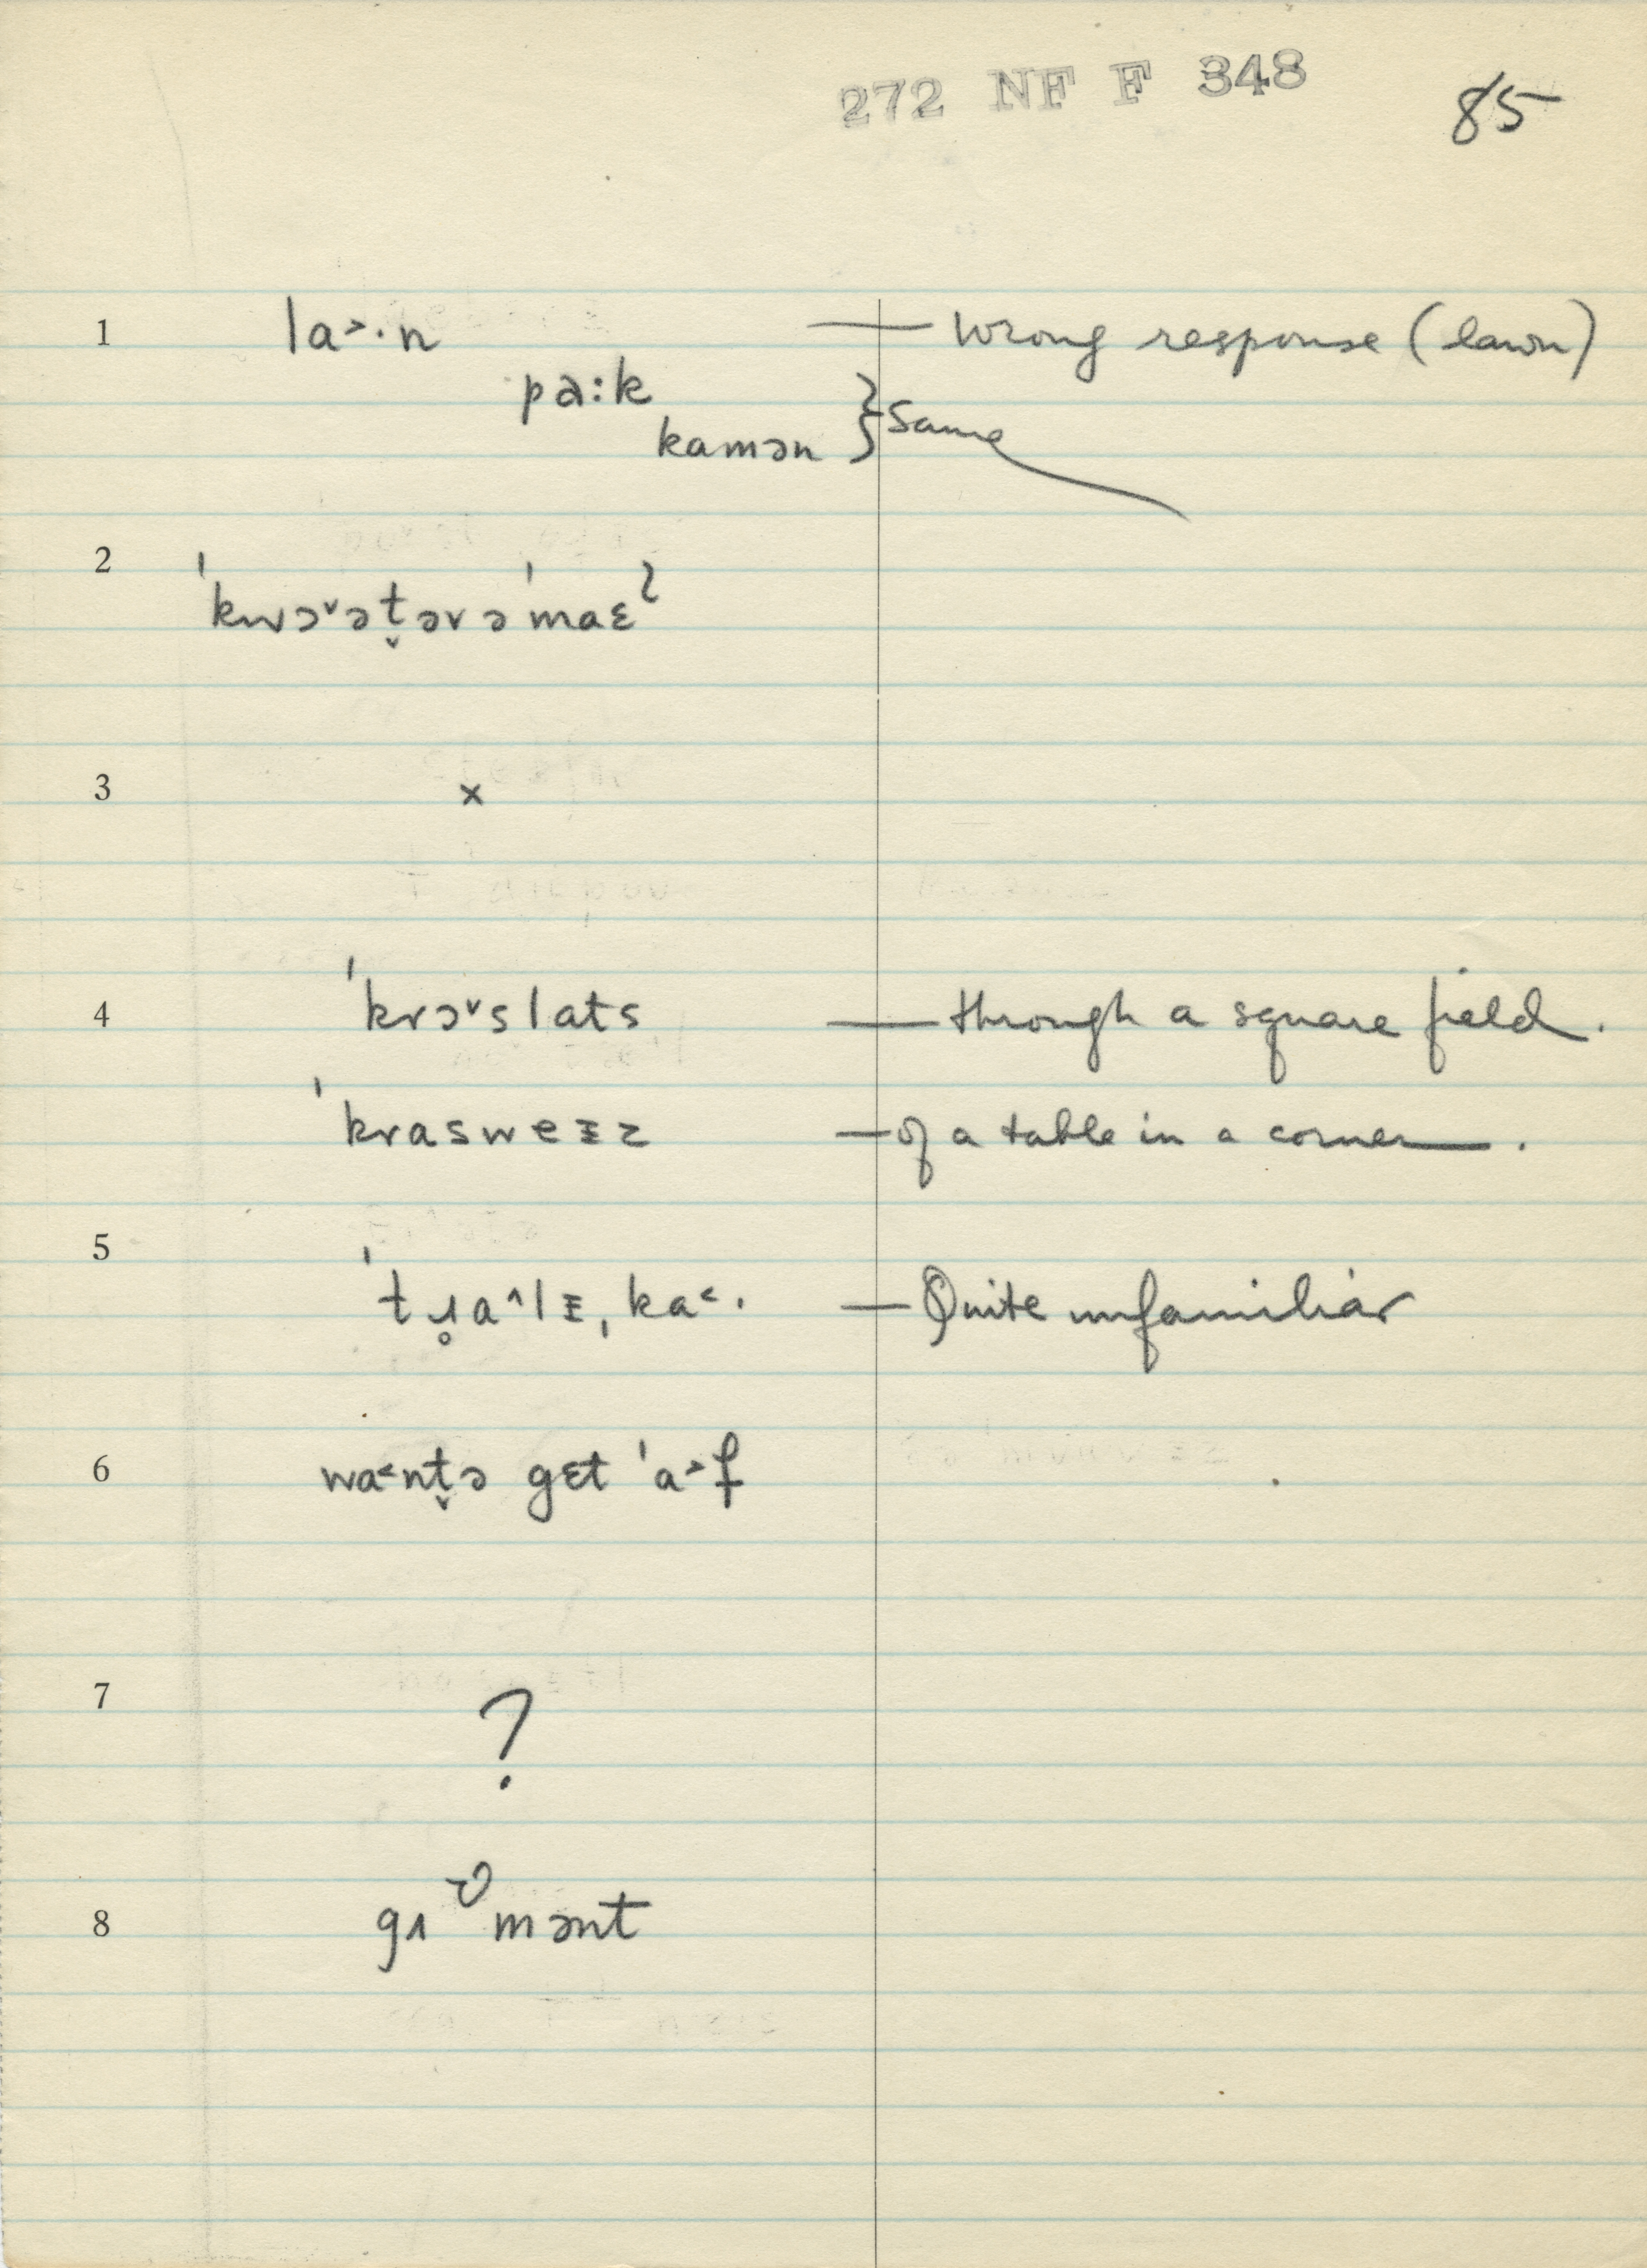 272 NF F 348
85
1 la˃·n — wrong response (lawn)
pa:k
kamən } same
2 ˈkwɔ˅ət̬əvəˈmaɛˀ
3 ×
4 ˈkrɔ˅slats — through a square field.
ˈkraswe₤z — of a table in a corner.
5 — Quite unfamiliar
6 wa˂nt̬ə gɛt ˈa˃f
7 ?
8 mənt